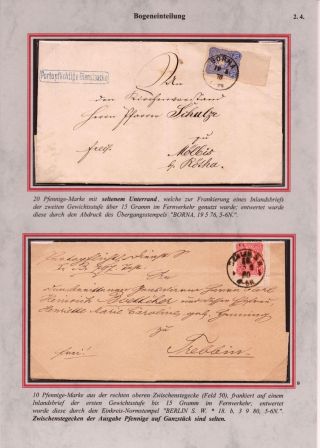 Bogeneinteilung
2. 4.
Portopflichtige Dienstsache
BORNA
An
den Kirchenvorstand
Herrn Pfarrer Schulze
zu
frei.
Mölbis
b. Rötha
20 Pfennige-Marke mit seltenem Unterrand, welche zur Frankierung eines Inlandsbriefs
der zweiten Gewichtsstufe über 15 Gramm im Fernverkehr genutzt wurde; entwertet wurde
diese durch den Abdruck des Übergangsstempels "BORNA, 19 5 76, 5-6N."
Heinrich
Henriette Marie Caroline, geb.
zu
frei!
Trebbin
10 Pfennige-Marke aus der rechten oberen Zwischenstegecke (Feld 50), frankiert auf einem
Inlandsbrief der ersten Gewichtsstufe bis 15 Gramm im Fernverkehr, entwertet
wurde diese durch den Einkreis-Normstempel "BERLIN S. W. * 18. b, 3 9 80, 5-6N."
Zwischenstegecken der Ausgabe Pfennige auf Ganzstück sind selten.